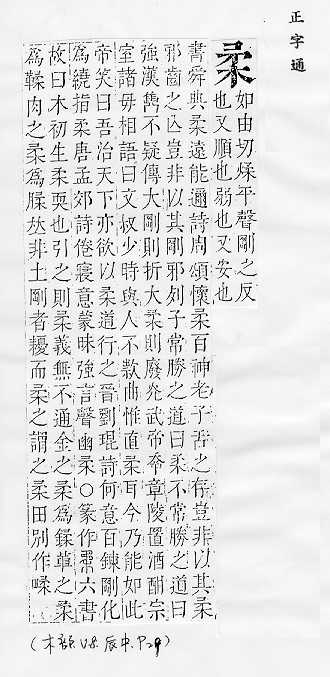 正字通
柔
如由切煣平聲剛之反
也又順也弱也又安也
書舜典柔遠能邇詩周頌懷柔百神老子舌之存豈非以其柔
邪齒之亾豈非以其剛邪列子常勝之道曰柔不常勝之道曰
強漢雋不疑傳大剛則折大柔則廢光武帝幸章陵置酒酣宗
室諸毋相語曰文叔少時與人不款曲惟直柔耳今乃能如此
帝笑曰吾治天下亦欲以柔道行之晉劉琨詩何意百鍊剛化
為繞指柔唐孟郊詩倦寢意蒙昧強言聲幽柔○篆作六書
故曰木初生柔耎也引之則柔義無不通金之柔為鍒革之柔
為鞣肉之柔為腬非土剛者耰而柔之謂之柔田別作
(木部 V.8. 辰中. P.29)